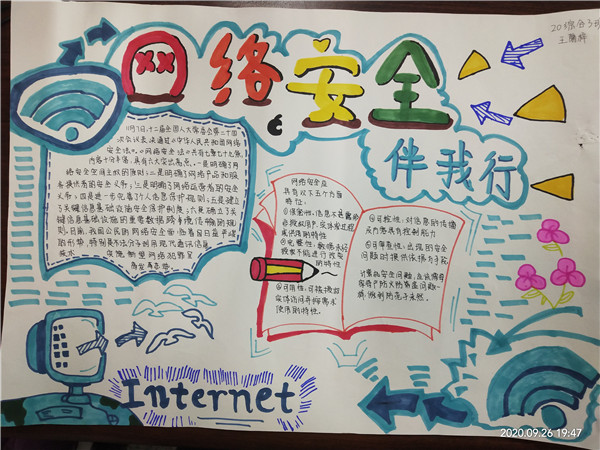 网络安全
伴我行
20综合3班
11月7日,十二届全国人大常委会第二十四
次会议表决通过《中华人民共和国网络
安全法》。《网络安全法》共有七章七十九条,
内容十分丰富,具有六大突出亮点。一是明确了网
络安全空间主权的原则;二是明确了网络产品和服
务提供者的安全义务;三是明确了网络运营者的安全
义务;四是进一步完善了个人信息保护规则;五是建立
了关键信息基础设施安全保护制度;六是确立了关
键信息基础设施的重要数据跨境传输的规
则。目前,我国公民的网络安全普
的形势,特别是不法分子利用现代通讯信息
技术 实施新型网络犯罪呈
高发事态势
网络安全应
具有以下五个方面
特征:
①保密性:信息不泄露给
非授权用户、实体或过程,
或供其利用的特性
②完整性:数据未经
授权不能进行改变
的特性
③可用性:可被授权
实体访问并按需求
使用的特性。
④可控性:对信息的传播
及内容具有控制能力
⑤可审查性:出现的安全
问题时提供依据与手段
计算机安全问题,应该像每
家每户防火防盗问题一
样,做到防范于未然。
Internet
2020.09.26 19:47